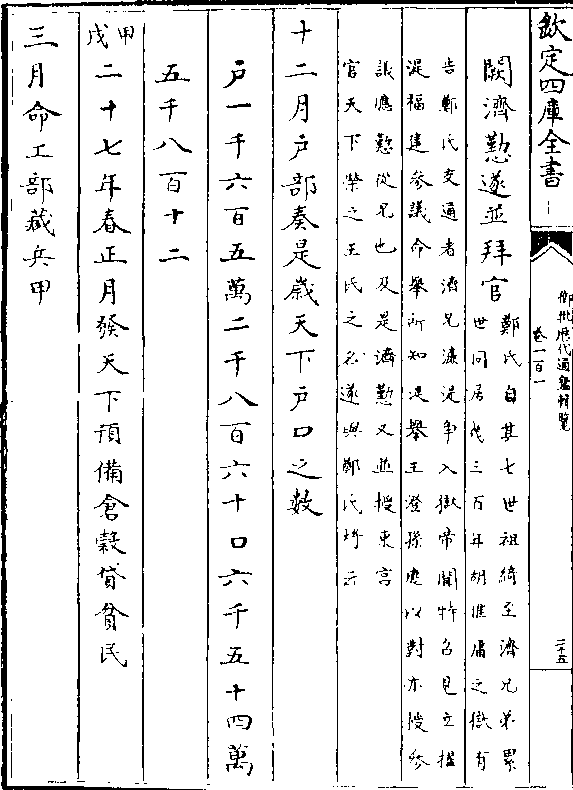 欽定四庫全書
御批歷代通鑑輯覽
卷一百一
二十五
闕濟懃遂並拜官
鄭氏自其七世祖綺至濟兄弟累
世同居幾三百年胡惟庸之獄有
告鄭氏交通者濟兄濂湜爭入獄帝聞特召見立擢
湜福建參議命舉所知湜舉王澄孫應以對亦授參
議應懃從兄也及是濟懃又並授東宮
官天下榮之王氏之名遂與鄭氏埒云
十二月戶部奏是歲天下戶口之數
戶一千六百五萬二千八百六十口六千五十四萬
五千八百十二
甲戌二十七年春正月發天下預備倉穀貸貧民
三月命工部藏兵甲